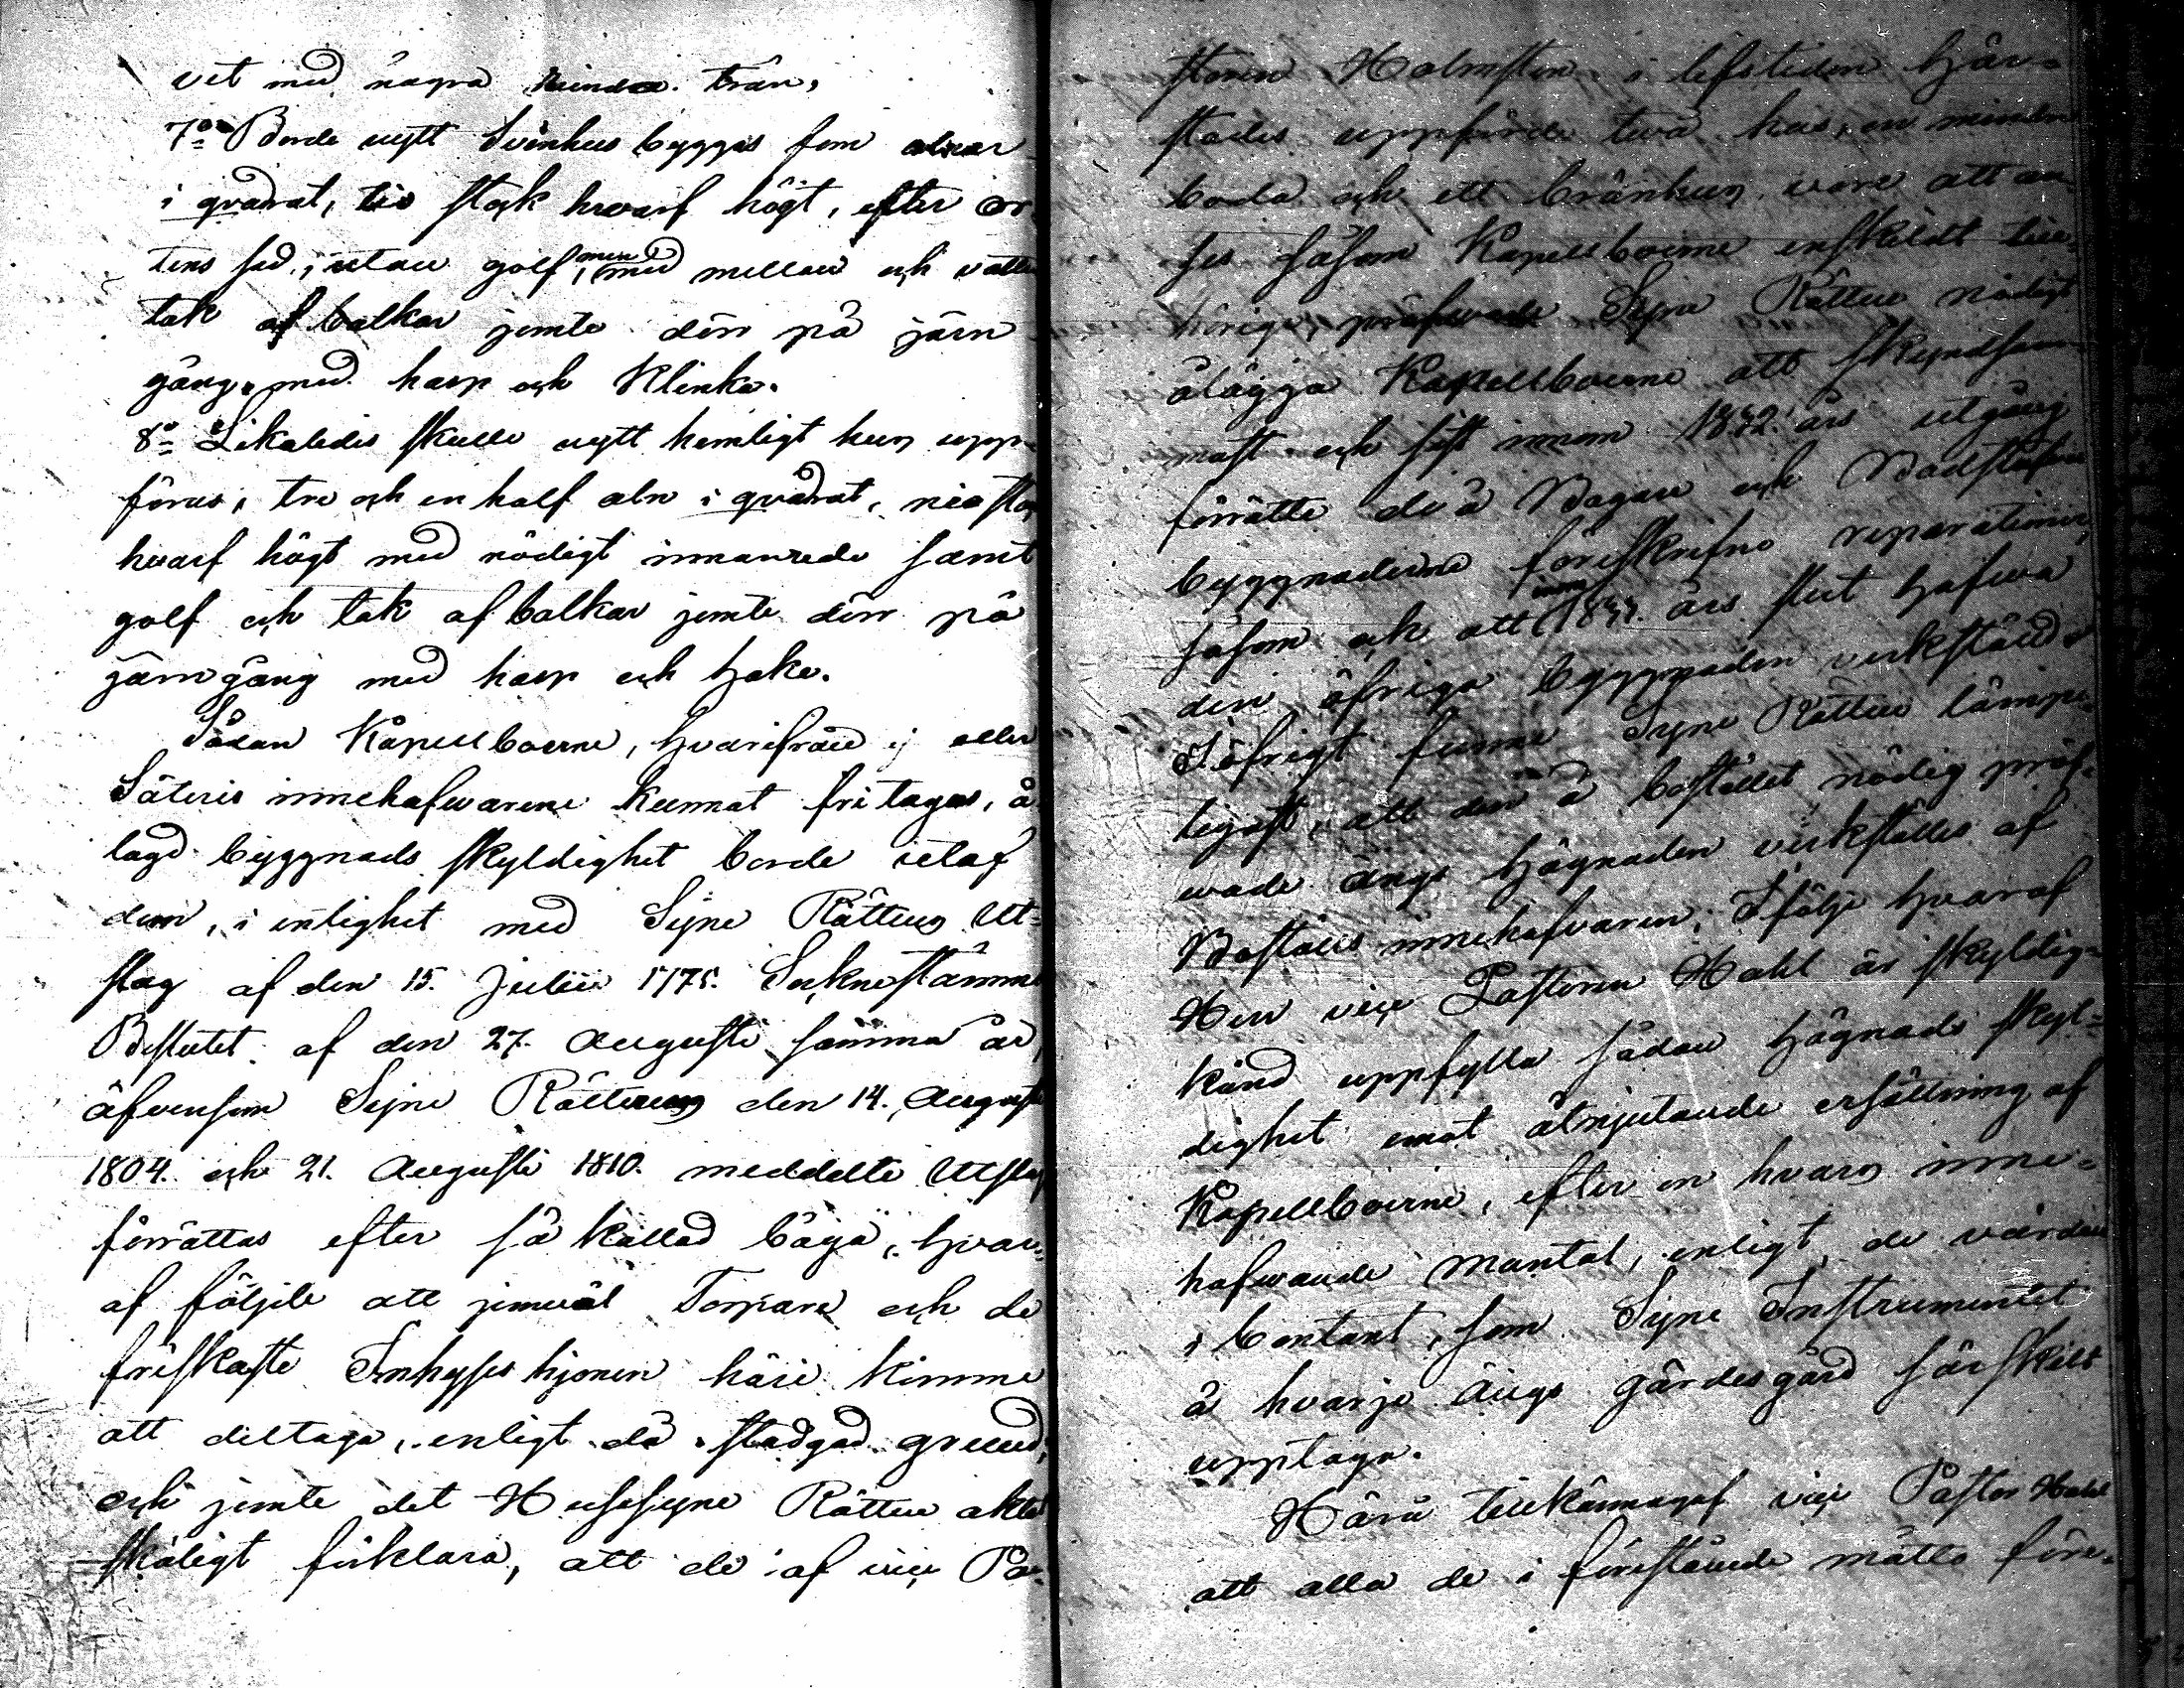 vet med några mindre trän,
7o Borde nytt Svinhus byggas fem alnar
i qvadrat, tio stock hvarf högt, efter or-
tens sed, utan golf, men med mellan och vatten
tak af balkar jemte dörr på järn
gång, med hasp och Klinka.
8o Likaledes skulle nytt hemligt hus upp-
föras, tre och en half aln i qvadrat, nio stock
hvarf högt med nödigt innanrede samt
golf och tak af balkar jemte dörr på
järngång med hasp och hake.
Sådan Kapellboerne, hvarifrån ej eller
Säteris innehafwarene kunnat fritagas, å-
lagd byggnads skyldighet borde utaf
dem, i enlighet med Syne Rättens Ut-
slag af den 15. Julii 1775. Sockenstämme
Beslutet af den 27. Augusti samma år,
äfvensom Syne Rättens den 14. Augusti
1804. och 21. Augusti 1810. meddelte Utslag
förrättas efter så kallad båga, hvar-
af följde att jemväl Torpare och de
friskaste Inhyses hjonen häri komme
att deltaga, enligt då stadgad grund,
och jemte det Husesyne Rätten aktade
skäligt förklara, att de af vice Pa-
storen Holmsten i lifstiden här-
städes uppförde två hus, en mindre
boda och ett bränhus, vore att an-
ses såsom Kapellboerne enskildt till-
hörige, pröfwade Syne Rätten nödigt
ålägga Kapellboerne att skyndsam-
mast och sist innom 1832. års utgång
förrätta de å Bagan och Badstufu
byggnaderne föreskrefne reparationer,
såsom ock att innom 1833. års slut hafwa
den öfriga byggnaden verkställd.
I öfrigt funne Syne Rätten lämpe-
ligast, att den å bostället nödig pröf-
wade ängs hägnaden verkställes af
Boställs innehafvaren, I följe hvaraf
Herr vice Pastoren Hahl är skyldig-
känd uppfylla sådan hägnads skyl-
dighet emot åtnjutande ersättning af
Kapellboerne, efter en hvars inne-
hafwande mantal, enligt de värden
i contant, som Syne Instrumentet
å hvarje ängs gärdesgård särskilt
upptaga.
Härå tillkännagaf vice Pastor Hahl
att alla de i förestående måtto före-